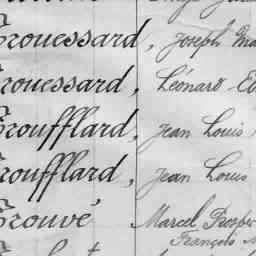 Trouessard, Joseph
Trouessard, Léonard
Troufflard, Jean Louis
Troufflard, Jean Louis
Trouvé Marcel Prosper
François